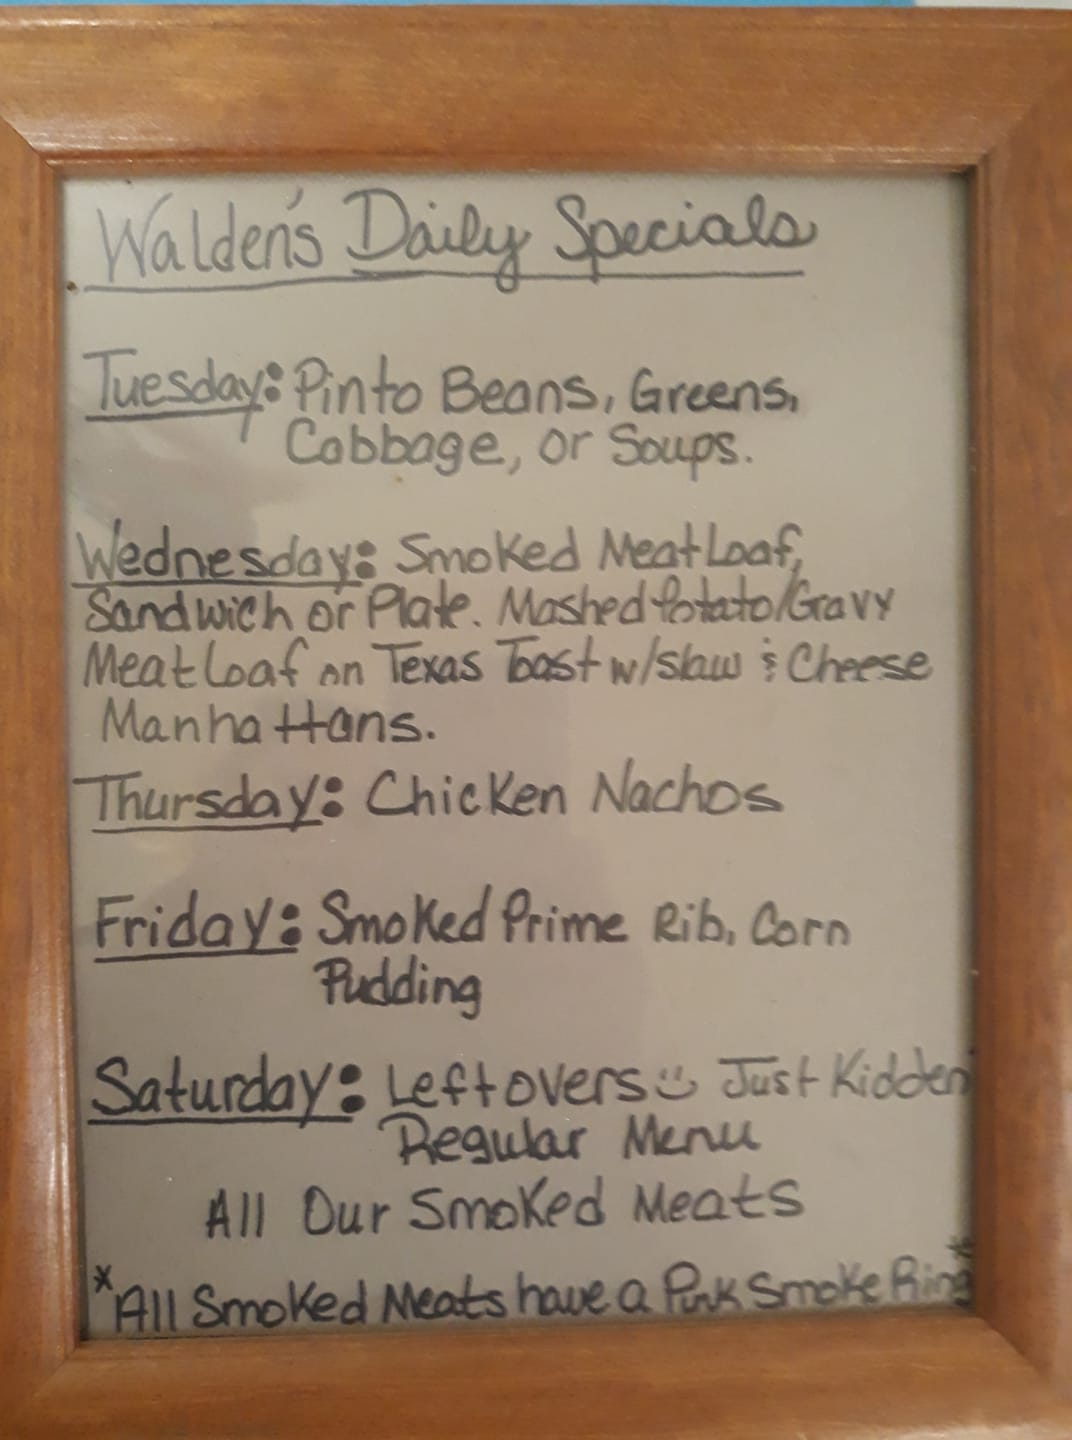 Walden's Daily Specials
Tuesday: Pinto Beans, Greens,
Cabbage, or Soups.
Wednesday: Smoked Meat Loaf,
Sandwich or Plate. Mashed Potato/Gravy
Meat Loaf on Texas Toast w/slaw & Cheese
Manhattans.
Thursday: Chicken Nachos
Friday: Smoked Prime Rib, Corn
Pudding
Saturday: Leftovers☺ Just Kidden
Regular Menu
All Our Smoked Meats
*All Smoked Meats have a Pink Smoke Ring*